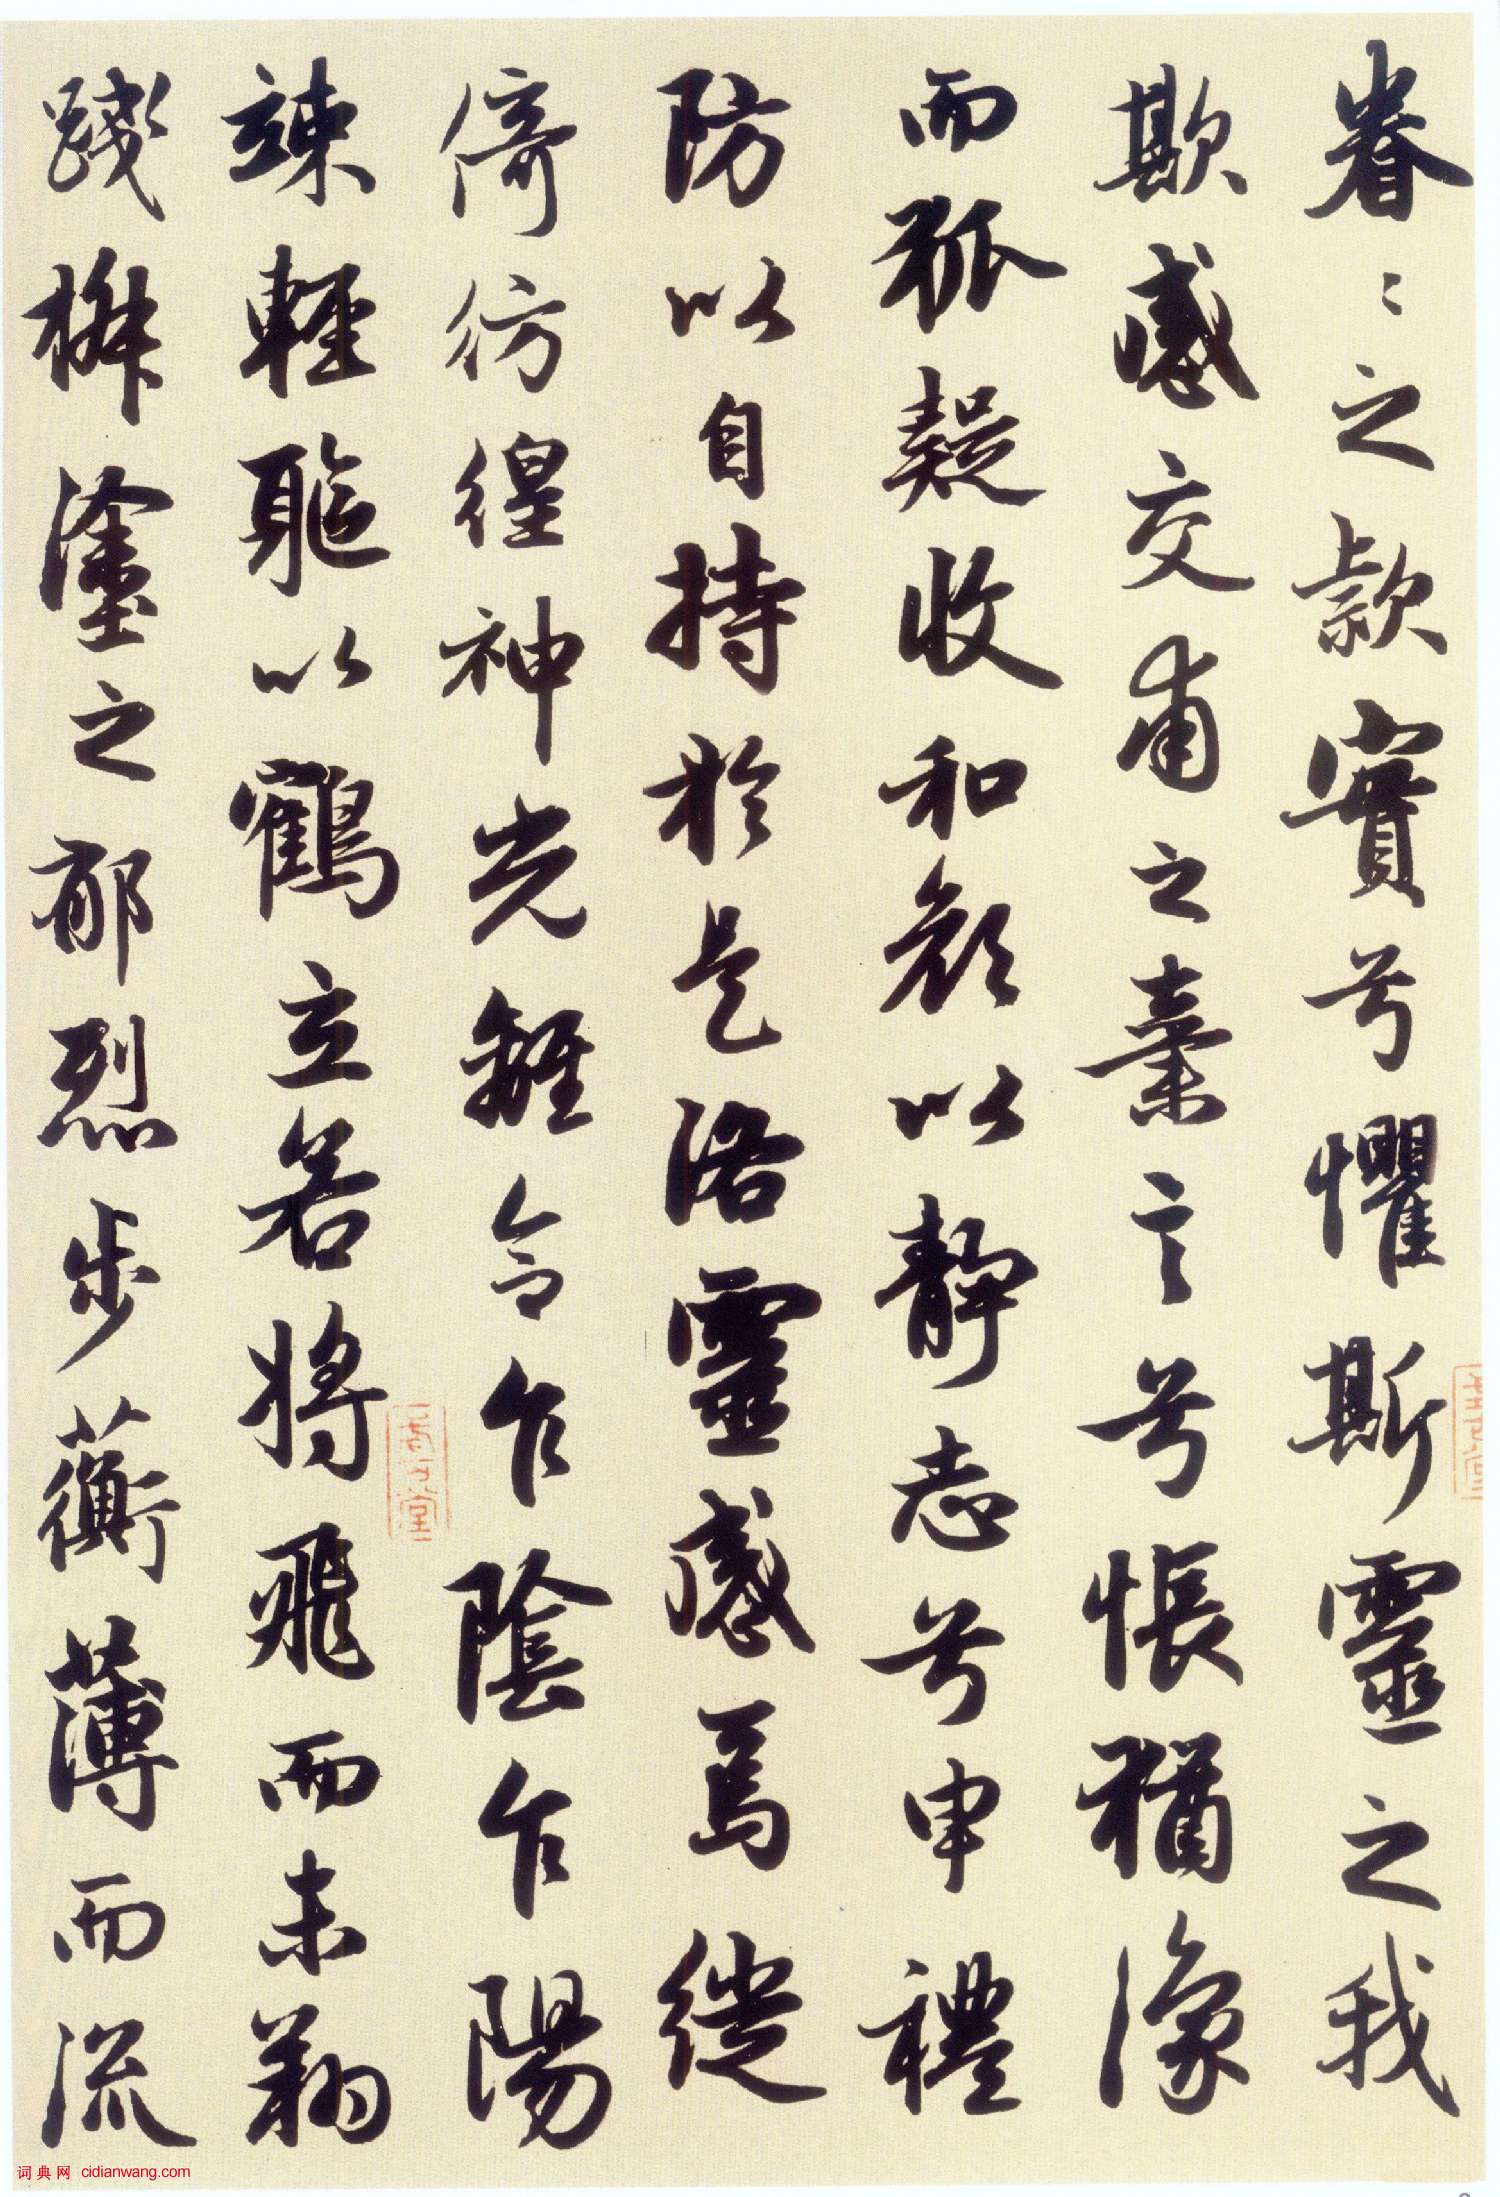 眷〻之款實兮懼斯靈之我
欺感交甫之棄言兮悵猶豫
而狐疑收和顔以静志兮申禮
防以自持於是洛靈感焉徙
倚彷徨神光離合乍陰乍陽
竦輕軀以鶴立若將飛而未翔
踐椒塗之郁烈步蘅薄而流
词典网 cidianwang.com